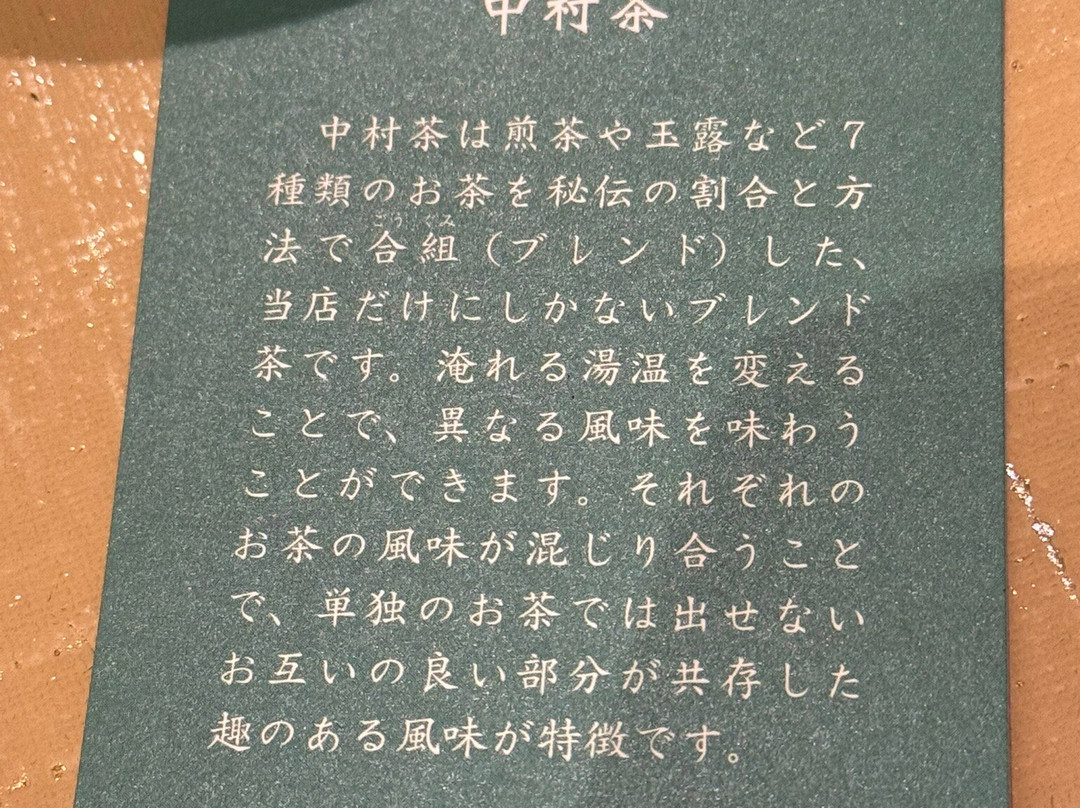 中村茶
中村茶は煎茶や玉露など7
種類のお茶を秘伝の割合と方
ごう ぐみ
法で合組（ブレンド）した、
当店だけにしかないブレンド
茶です。淹れる湯温を変える
ことで、異なる風味を味わう
ことができます。それぞれの
お茶の風味が混じり合うこと
で、単独のお茶では出せない
お互いの良い部分が共存した
趣のある風味が特徴です。